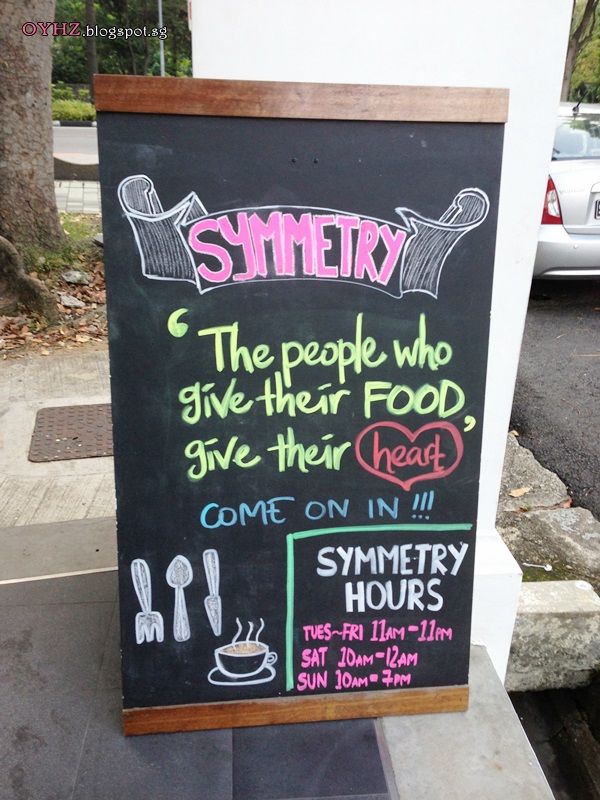 OYHZ.blogspot.sg
SYMMETRY
‘The people who
give their FOOD,
give their heart’
COME ON IN !!!
SYMMETRY
HOURS
TUES~FRI 11AM-11PM
SAT 10AM-12AM
SUN 10AM-7PM